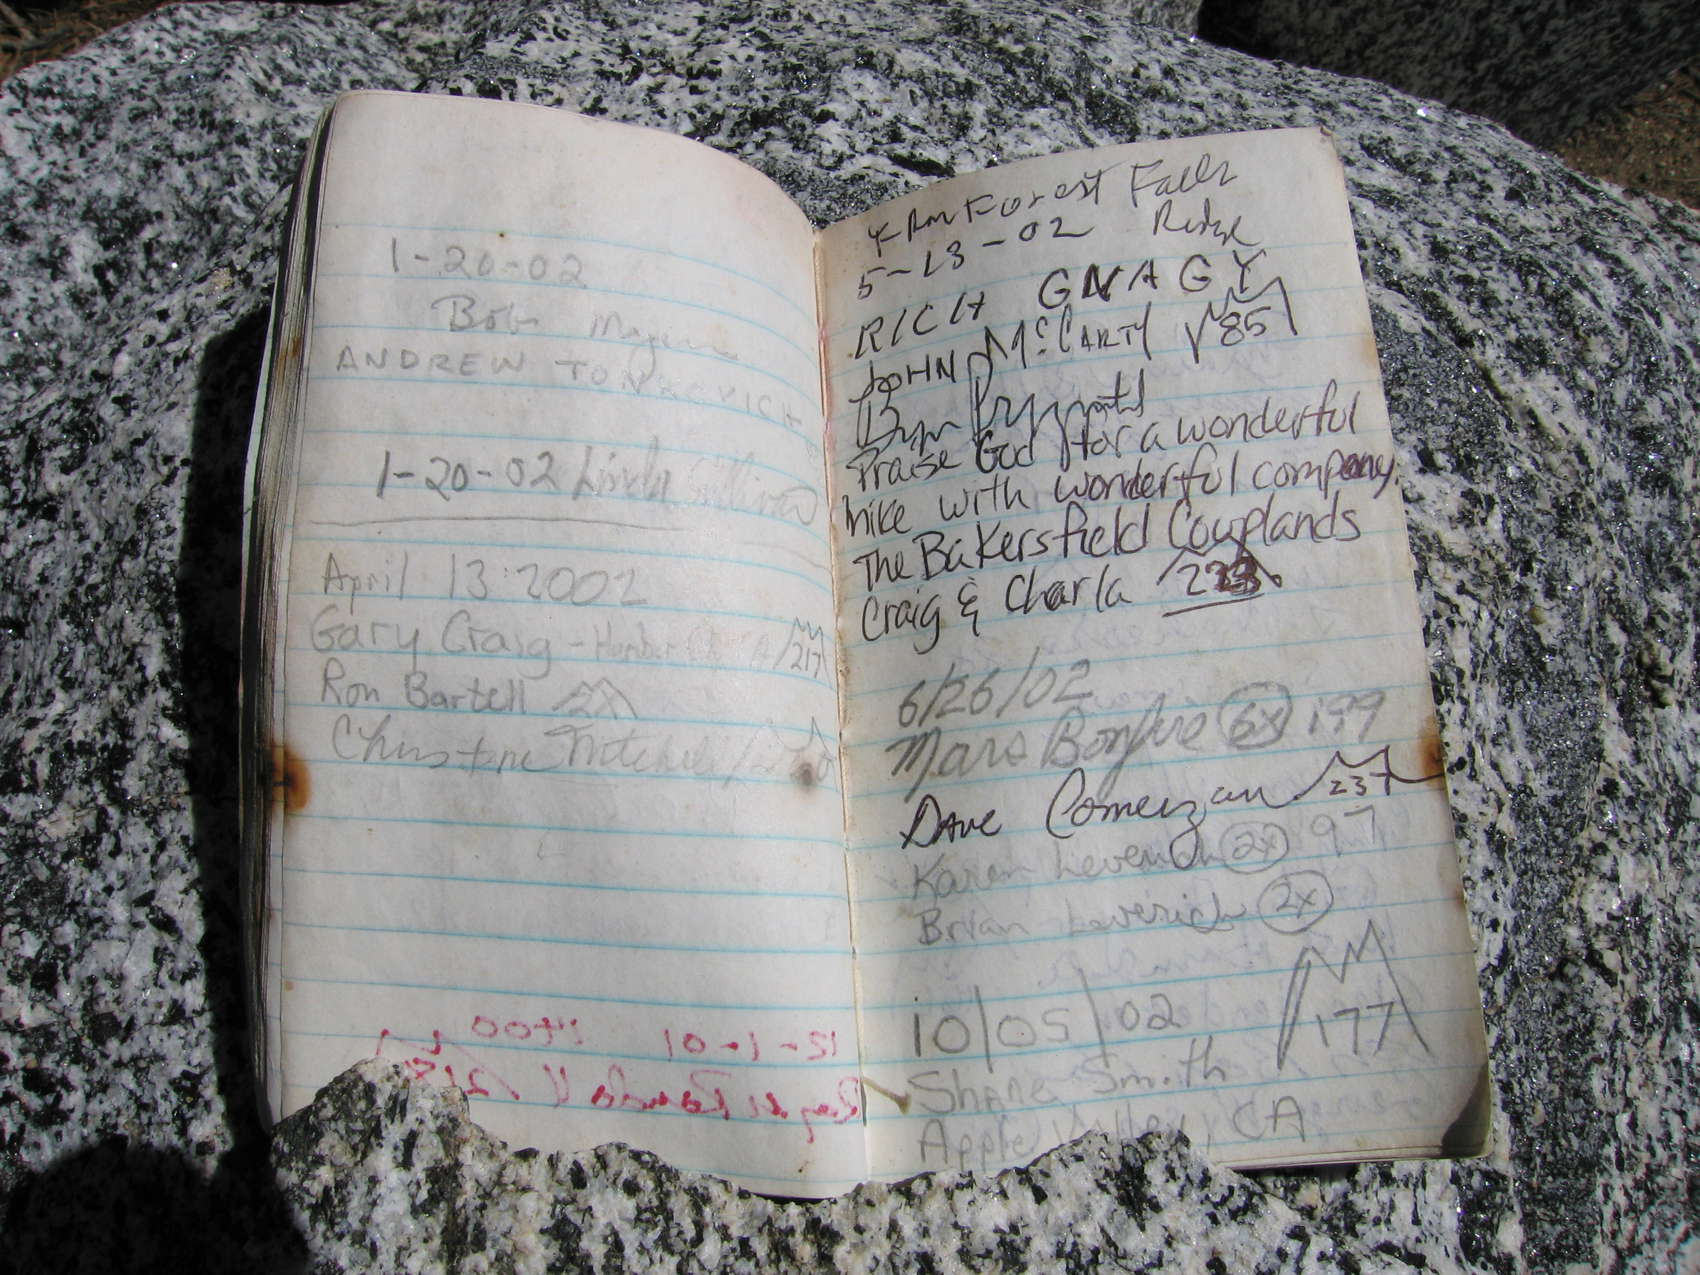 1-20-02
Bob
ANDREW TONKOVICH
1-20-02 Linda
April 13 2002
Gary Craig - 217
Ron Bartell 2X
Christine Mitchell
Forest Falls
5-13-02 Ridge
RICH GNAGY
JOHN McCARTY 85
Praise God for a wonderful
hike with wonderful company.
The Bakersfield Cowplands
Craig & Charla 223
6/26/02
Mars Bonfire 6x 199
DAVE Comerzan 237
Karen Leverich 2x 97
Brian Leverich 2x
10/05/02 177
Shane Smith
Apple Valley, CA